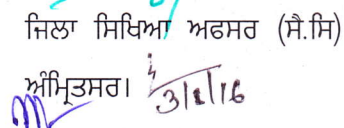 ਜਿਲਾ ਸਿਖਿਆ ਅਫਸਰ (ਸੈ.ਸਿ)
ਅੰਮ੍ਰਿਤਸਰ। 3/2/16